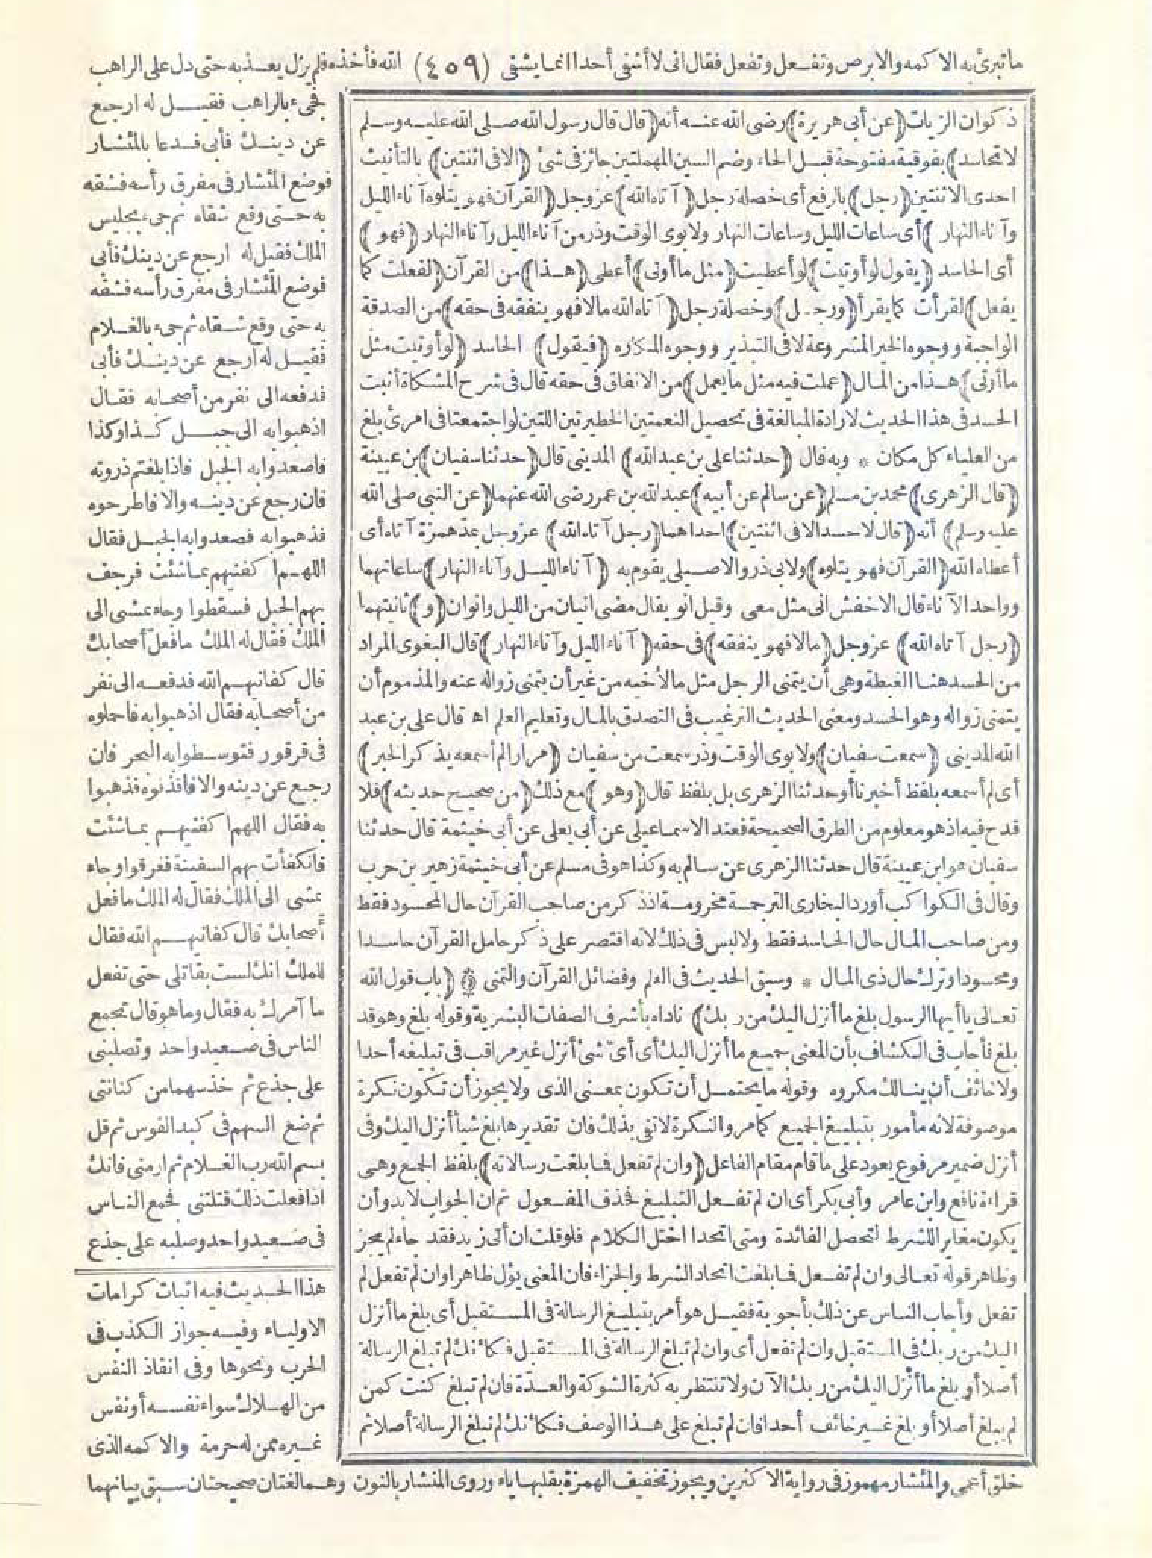 ما تبرئ به الاكمه والابرص وتفعل وتفعل فقال انى لا أشفى أحدا انما يشفى (٤٥٩) الله فأخذه فلم يزل يعذبه حتى دل على الراهب
ذكوان الزيات (عن أبى هريرة) رضى الله عنه أنه (قال قال رسول الله صلى الله عليه وسلم
لا تحاسد) بفوقية مفتوحة قبل الحاء وضم السين المهملتين جائز فى شئ (الا فى اثنتين) بالتأنيث
احدى الاثنتين (رجل) بالرفع أى خصلة رجل (آتاه الله) عز وجل (القرآن فهو يتلوه آناء الليل
وآناء النهار) أى ساعات الليل وساعات النهار ولابوى الوقت وذر من آناء الليل وآناء النهار (فهو)
أى الحاسد (يقول لو أوتيت) لو أعطيت (مثل ما أوتى) أعطى (هذا) من القرآن (لفعلت كما
يفعل) لقرأت كما يقرأ (ورجل) وخصلة رجل (آتاه الله مالا فهو ينفقه فى حقه) من الصدقة
الواجبة ووجوه الخير المشروعة لا فى التبذير ووجوه المكاره (فيقول) الحاسد (لو أوتيت مثل
ما أوتى) هذا من المال (عملت فيه مثل ما يعمل) من الانفاق فى حقه قال فى شرح المشكاة أثبت
الحسد فى هذا الحديث لارادة المبالغة فى تحصيل النعمتين الخطيرتين اللتين لو اجتمعتا فى امرئ بلغ
من العلياء كل مكان * وبه قال (حدثنا على بن عبد الله) المدينى قال (حدثنا سفيان) بن عيينة
(قال الزهرى) محمد بن مسلم (عن سالم عن أبيه) عبد الله بن عمر رضى الله عنهما (عن النبى صلى الله
عليه وسلم) أنه (قال لا حسد الا فى اثنتين) احداهما (رجل آتاه الله) عز وجل بمد همزة آتاه أى
أعطاه الله (القرآن فهو يتلوه) ولابى ذر والاصيلى يقوم به (آناء الليل وآناء النهار) ساعاتهما
وواحد الآناء قال الاخفش انى مثل معى وقيل انو يقال مضى انيان من الليل وانوان (و) ثانيتهما
(رجل آتاه الله) عز وجل (مالا فهو ينفقه) فى حقه (آناء الليل وآناء النهار) قال البغوى المراد
من الحسد هنا الغبطة وهى أن يتمنى الرجل مثل ما لاخيه من غير أن يتمنى زواله عنه والمذموم أن
يتمنى زواله وهو الحسد ومعنى الحديث الترغيب فى التصدق بالمال وتعليم العلم اه قال على بن عبد
الله المدينى (سمعت سفيان) ولابوى الوقت وذر سمعت من سفيان (مرارا لم أسمعه يذكر الخبر)
أى لم أسمعه بلفظ أخبرنا أو حدثنا الزهرى بل بلفظ قال (وهو) مع ذلك (من صحيح حديثه) فلا
قدح فيه اذ هو معلوم من الطرق الصحيحة فعند الاسماعيلى عن أبى يعلى عن أبى خيثمة قال حدثنا
سفيان هو ابن عيينة قال حدثنا الزهرى عن سالم به وكذا هو فى مسلم عن أبى خيثمة زهير بن حرب
وقال فى الكواكب أورد البخارى الترجمة مخرومة اذ ذكر من صاحب القرآن حال المحسود فقط
ومن صاحب المال حال الحاسد فقط ولا لبس فى ذلك لانه اقتصر على ذكر حامل القرآن حاسدا
ومحسودا وترك حال ذى المال * وسبق الحديث فى العلم وفضائل القرآن والتمنى (باب قول الله
تعالى يا أيها الرسول بلغ ما أنزل اليك من ربك) ناداه بأشرف الصفات البشرية وقوله بلغ وهو قد
بلغ فأجاب فى الكشاف بأن المعنى جميع ما أنزل اليك أى أى شئ أنزل غير مراقب فى تبليغه أحدا
ولا خائف أن ينالك مكروه وقوله ما يحتمل أن تكون بمعنى الذى ولا يجوز أن تكون نكرة
موصوفة لانه مأمور بتبليغ الجميع كما مر والنكرة لا تفى بذلك فان تقديرها بلغ شيأ أنزل اليك وفى
أنزل ضمير مرفوع يعود على ما قام مقام الفاعل (وان لم تفعل فما بلغت رسالاته) بلفظ الجمع وهى
قراءة نافع وابن عامر وأبى بكر أى ان لم تفعل التبليغ فحذف المفعول ثم ان الجواب لابد وأن
يكون مغايرا للشرط لتحصل الفائدة ومتى اتحدا اختل الكلام فلو قلت ان أتى زيد فقد جاء لم يجز
وظاهر قوله تعالى وان لم تفعل فما بلغت اتحاد الشرط والجزاء فان المعنى يؤل ظاهرا وان لم تفعل لم
تفعل وأجاب الناس عن ذلك بأجوبة فقيل هو أمر بتبليغ الرسالة فى المستقبل أى بلغ ما أنزل
اليك من ربك فى المستقبل وان لم تفعل أى وان لم تبلغ الرسالة فى المستقبل فكأنك لم تبلغ الرسالة
أصلا أو بلغ ما أنزل اليك من ربك الآن ولا تنتظر به كثرة الشوكة والعدة فان لم تبلغ كنت كمن
لم يبلغ أصلا أو بلغ غير خائف أحدا فان لم تبلغ على هذا الوصف فكأنك لم تبلغ الرسالة أصلا ثم
فجئ بالراهب فقيل له ارجع
عن دينك فأبى فدعا بالمئشار
فوضع المئشار فى مفرق رأسه فشقه
به حتى وقع شقاه ثم جئ بجليس
الملك فقيل له ارجع عن دينك فأبى
فوضع المئشار فى مفرق رأسه فشقه
به حتى وقع شقاه ثم جئ بالغلام
فقيل له ارجع عن دينك فأبى
فدفعه الى نفر من أصحابه فقال
اذهبوا به الى جبل كذا وكذا
فاصعدوا به الجبل فاذا بلغتم ذروته
فان رجع عن دينه والا فاطرحوه
فذهبوا به فصعدوا به الجبل فقال
اللهم اكفنيهم بما شئت فرجف
بهم الجبل فسقطوا وجاء يمشى الى
الملك فقال له الملك ما فعل أصحابك
قال كفانيهم الله فدفعه الى نفر
من أصحابه فقال اذهبوا به فاحملوه
فى قرقور فتوسطوا به البحر فان
رجع عن دينه والا فاقذفوه فذهبوا
به فقال اللهم اكفنيهم بما شئت
فانكفأت بهم السفينة فغرقوا وجاء
يمشى الى الملك فقال له الملك ما فعل
أصحابك قال كفانيهم الله فقال
للملك انك لست بقاتلى حتى تفعل
ما آمرك به فقال وما هو قال تجمع
الناس فى صعيد واحد وتصلبنى
على جذع ثم خذ سهما من كنانتى
ثم ضع السهم فى كبد القوس ثم قل
بسم الله رب الغلام ثم ارمنى فانك
اذا فعلت ذلك قتلتنى فجمع الناس
فى صعيد واحد وصلبه على جذع
هذا الحديث فيه اثبات كرامات
الاولياء وفيه جواز الكذب فى
الحرب ونحوها وفى انقاذ النفس
من الهلاك سواء نفسه أو نفس
غيره ممن له حرمة والاكمه الذى
خلق أعمى والمئشار مهموز فى رواية الاكثرين ويجوز تخفيف الهمزة بقلبها ياء وروى المنشار بالنون وهما لغتان صحيحتان سبق بيانهما